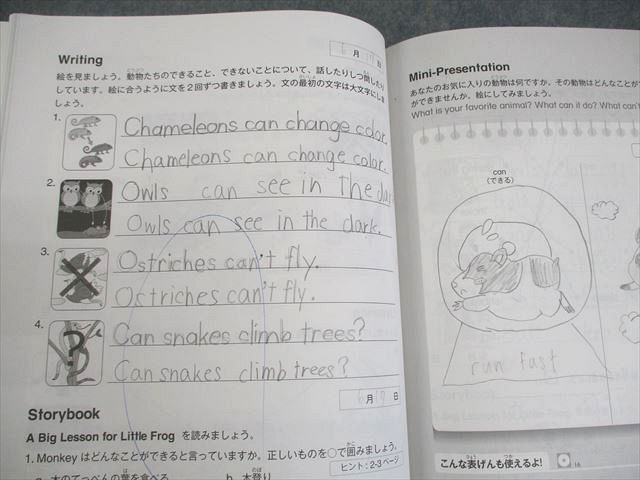 Writing
6月17日
絵を見ましょう。動物たちのできること、できないことについて、話したりしつ問したり
しています。絵に合うように文を2回ずつ書きましょう。文の最初の文字は大文字にしま
しょう。
1. Chameleons can change color.
Chameleons can change color.
2. Owls can see in the dark
Owls can see in the dark.
3. Ostriches can't fly.
Ostriches can't fly.
4. Can snakes climb trees?
Can snakes climb trees?
6月17日
Storybook
A Big Lesson for Little Frog を読みましょう。
1. Monkey はどんなことができると言っていますか。正しいものを○で囲みましょう。
ヒント：2-3ページ
a. 木のてっぺんの葉を食べる
b. 木登り
Mini-Presentation
あなたのお気に入りの動物は何ですか。その動物はどんなことがで
ができませんか。絵にしてみましょう。
What is your favorite animal? What can it do? What can'
can
(できる)
run fast
こんな表げんも使えるよ!
16